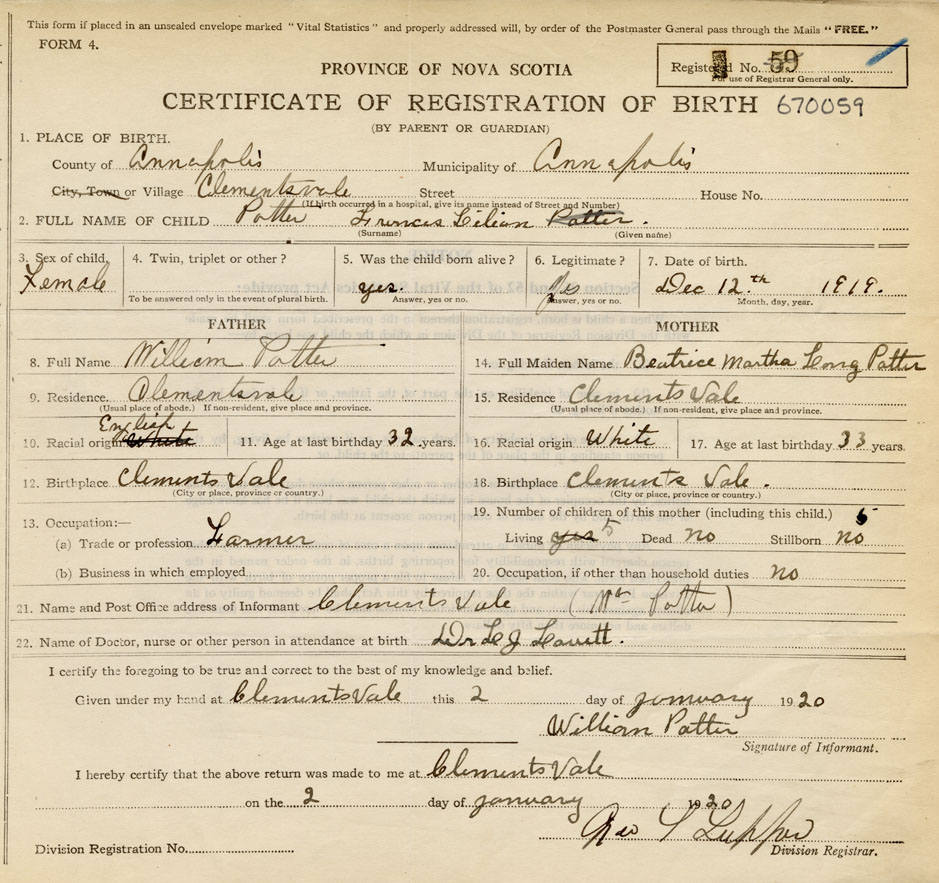 This form if placed in an unsealed envelope marked "Vital Statistics" and properly addressed will, by order of the Postmaster General pass through the Mails "FREE."
FORM 4.
Registered No. 59
For use of Registrar General only.
PROVINCE OF NOVA SCOTIA
CERTIFICATE OF REGISTRATION OF BIRTH 670059
(BY PARENT OR GUARDIAN)
1. PLACE OF BIRTH.
County of Annapolis Municipality of Annapolis
City, Town or Village Clementsvale Street House No.
(If birth occurred in a hospital, give its name instead of Street and Number)
2. FULL NAME OF CHILD Potter Frances Lilian Potter.
(Surname) (Given name)
3. Sex of child. 4. Twin, triplet or other ? 5. Was the child born alive ? 6. Legitimate ? 7. Date of birth.
Female yes. Yes Dec 12th 1919.
To be answered only in the event of plural birth. Answer, yes or no. Answer, yes or no. Month, day, year.
FATHER MOTHER
8. Full Name William Potter 14. Full Maiden Name Beatrice Martha Long Potter
9. Residence. Clementsvale 15. Residence Clements Vale
(Usual place of abode.) If non-resident, give place and province. (Usual place of abode.) If non-resident, give place and province.
English
10. Racial origin White 11. Age at last birthday 32 years. 16. Racial origin. White 17. Age at last birthday 33 years.
12. Birthplace Clements Vale 18. Birthplace Clements Vale.
(City or place, province or country.) (City or place, province or country.)
13. Occupation:— 19. Number of children of this mother (including this child.) 5
(a) Trade or profession Farmer Living yes 5 Dead no Stillborn no
(b) Business in which employed 20. Occupation, if other than household duties no
21. Name and Post Office address of Informant Clements Vale (Wm Potter)
22. Name of Doctor, nurse or other person in attendance at birth Dr L J Lovitt.
I certify the foregoing to be true and correct to the best of my knowledge and belief.
Given under my hand at Clements Vale this 2 day of january 1920
William Potter
Signature of Informant.
I hereby certify that the above return was made to me at Clements Vale
on the 2 day of january 1920
Geo
Division Registration No. Division Registrar.